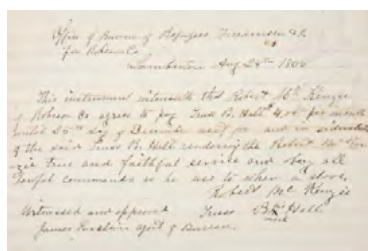 Office of Bureau of Refugees Freedmen &c
for Robeson Co
Lumberton Aug 28th 1866
This instrument witnesseth that Robert Mc Kenzie
of Robeson Co agrees to pay B. Hall 4.00 per month
until 25th day of December next for and in
of the said B. Hall rendering the Robert Mc Ken-
zie true and faithful service and obey all
lawful commands
Robert Mc Kenzie
Witnessed and approved Hall
James agent of Bureau mark